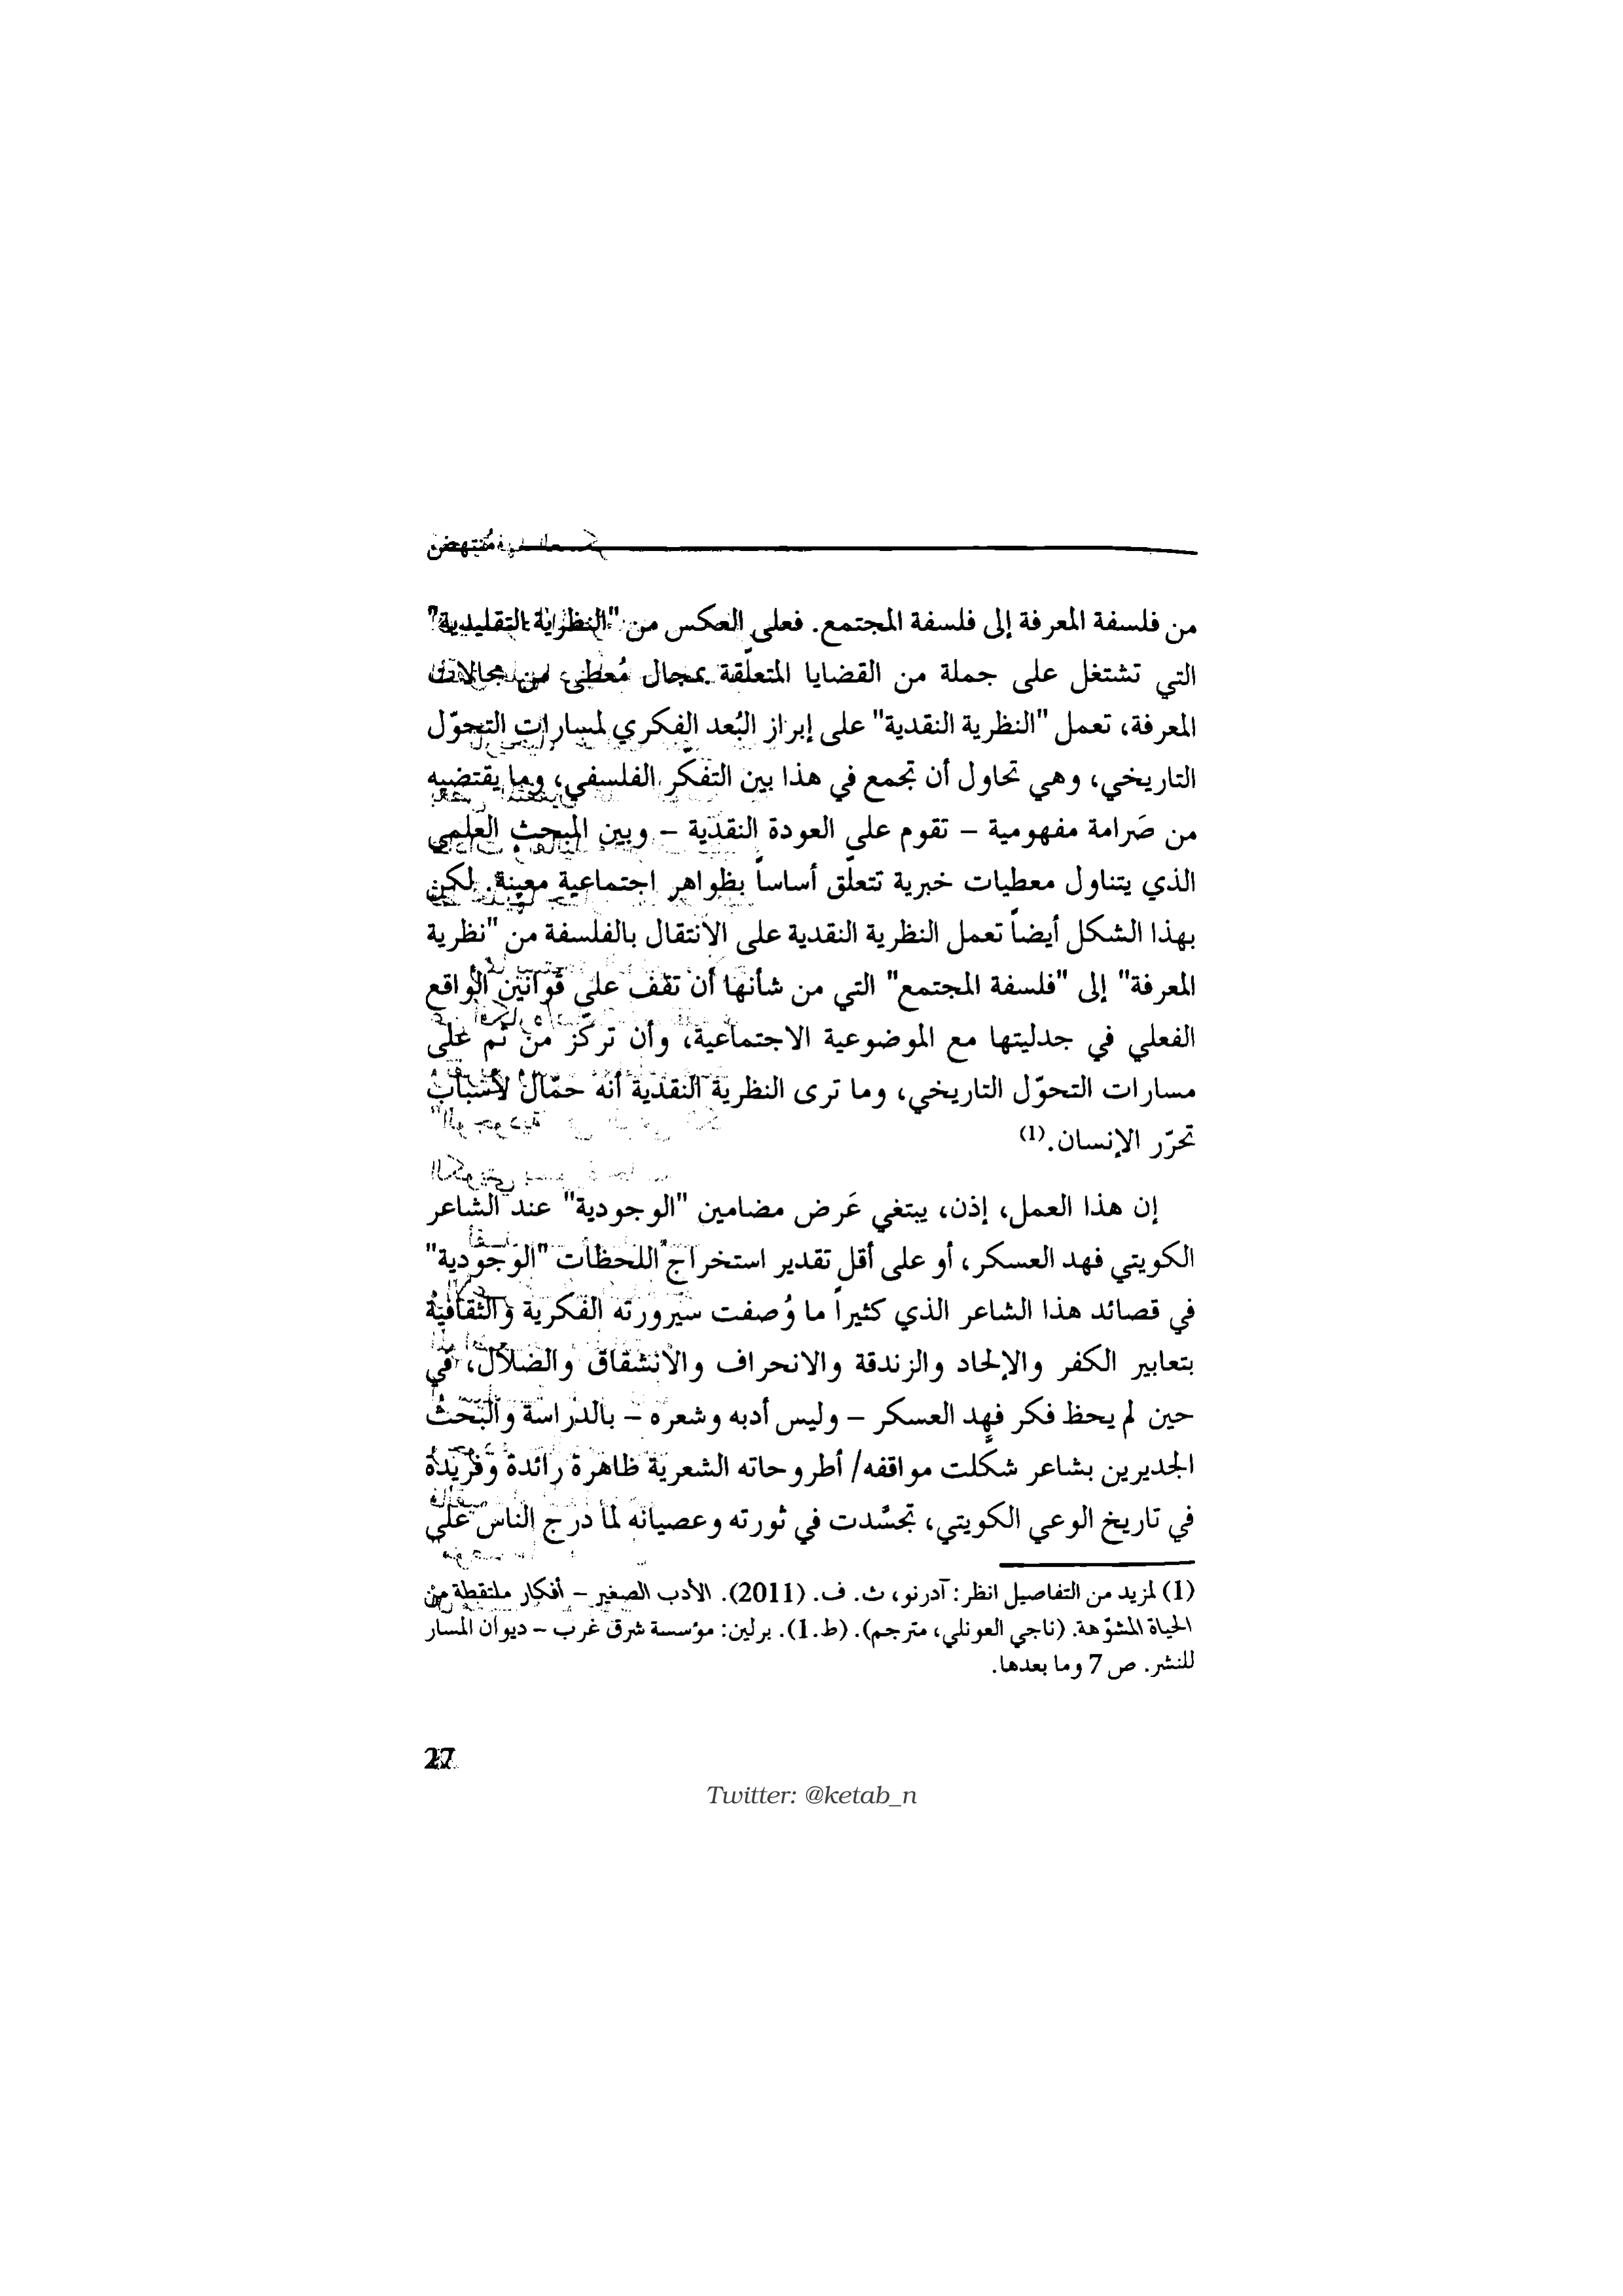 من فلسفة المعرفة إلى فلسفة المجتمع. فعلى العكس من "النظرية التقليدية"
التي تشتغل على جملة من القضايا المتعلّقة بمجال مُعطى من مجالات
المعرفة، تعمل "النظرية النقدية" على إبراز البُعد الفكري لمسارات التحوّل
التاريخي، وهي تحاول أن تجمع في هذا بين التفكّر الفلسفي، وما يقتضيه
من صَرامة مفهومية – تقوم على العودة النقدية – وبين المبحث العلمي
الذي يتناول معطيات خبرية تتعلّق أساساً بظواهر اجتماعية معينة. لكن
بهذا الشكل أيضاً تعمل النظرية النقدية على الانتقال بالفلسفة من "نظرية
المعرفة" إلى "فلسفة المجتمع" التي من شأنها أن تقف على قوانين الواقع
الفعلي في جدليتها مع الموضوعية الاجتماعية، وأن تركّز من ثم على
مسارات التحوّل التاريخي، وما ترى النظرية النقدية أنه حمّال لأسباب
تحرّر الإنسان.(1)
إن هذا العمل، إذن، يبتغي عَرض مضامين "الوجودية" عند الشاعر
الكويتي فهد العسكر، أو على أقل تقدير استخراج اللحظات "الوجودية"
في قصائد هذا الشاعر الذي كثيراً ما وُصفت سيرورته الفكرية والثقافية
بتعابير الكفر والإلحاد والزندقة والانحراف والانشقاق والضلال، في
حين لم يحظ فكر فهد العسكر – وليس أدبه وشعره – بالدراسة والبحث
الجديرين بشاعر شكّلت مواقفه/ أطروحاته الشعرية ظاهرة رائدة وفريدة
في تاريخ الوعي الكويتي، تجسَّدت في ثورته وعصيانه لما درج الناس على
(1) لمزيد من التفاصيل انظر: آدرنو، ث. ف. (2011). الأدب الصغير – أفكار ملتقطة من
الحياة المشوّهة. (ناجي العونلي، مترجم). (ط.1). برلين: مؤسسة شرق غرب – ديوان المسار
للنشر. ص 7 وما بعدها.
27
Twitter: @ketab_n